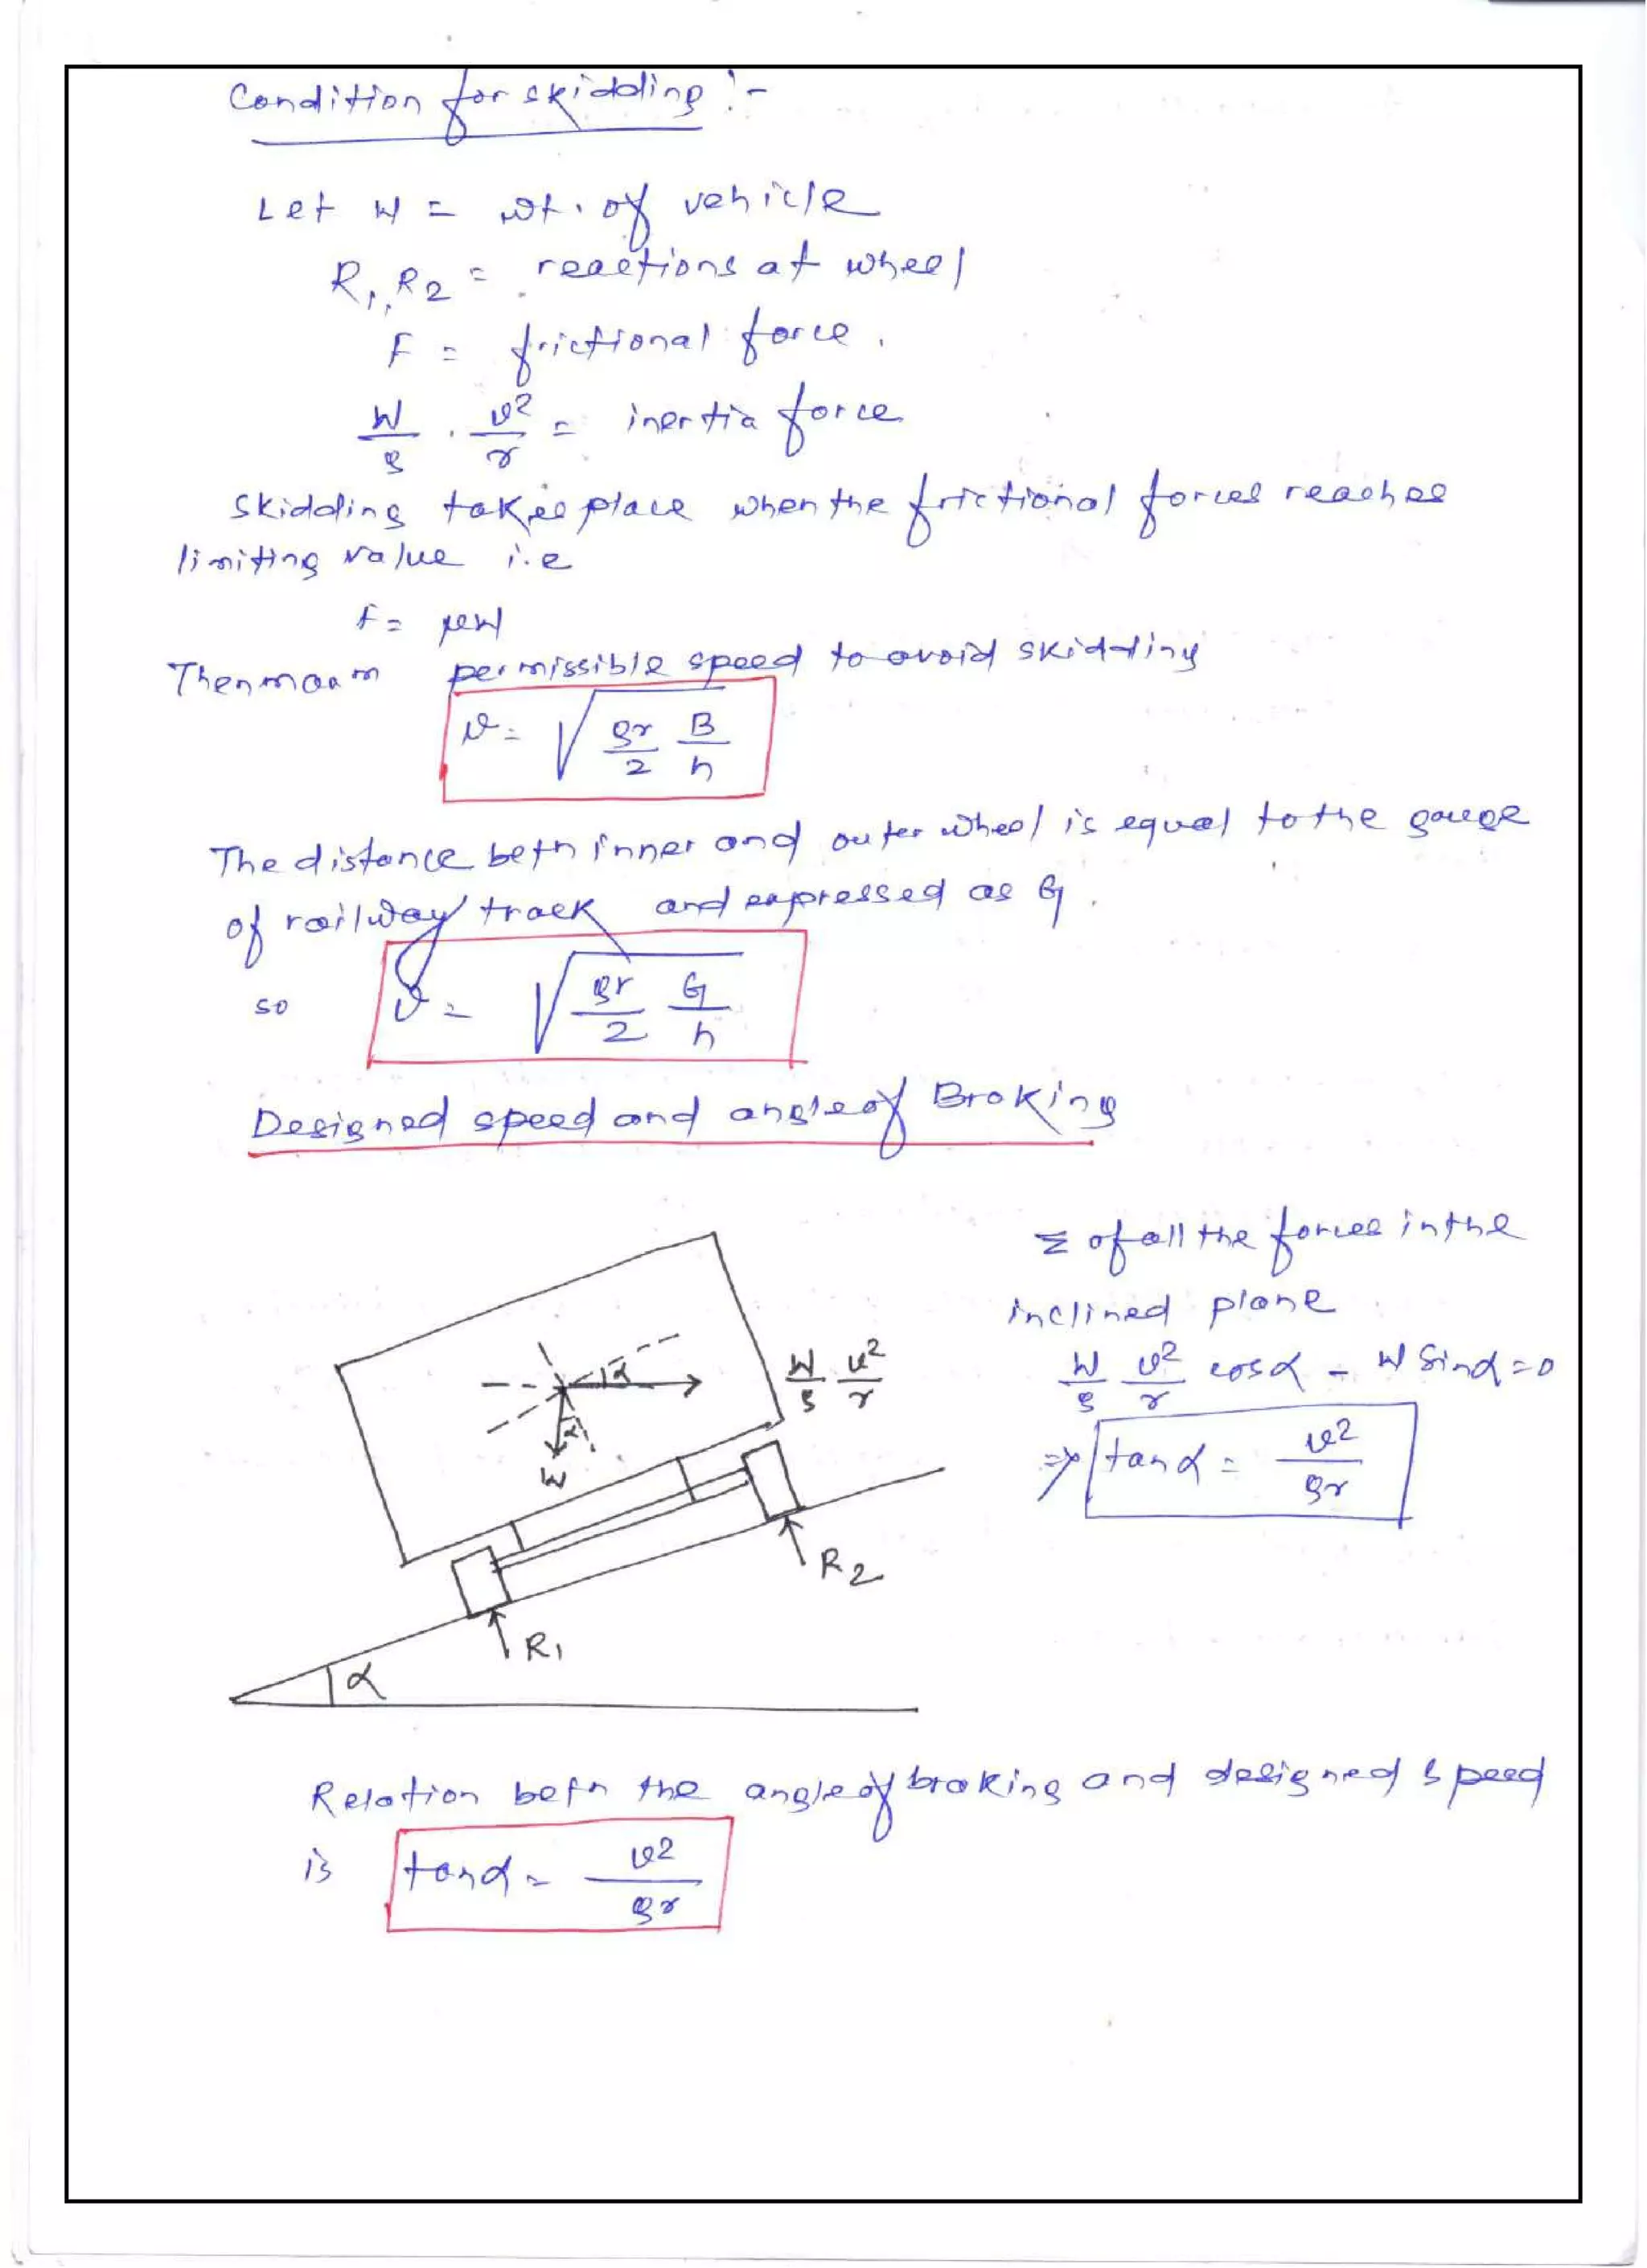 Condition for skidding :-
Let W = wt. of vehicle
R1, R2 = reactions at wheel
F = frictional force.
W/g . v²/r = inertia force
Skidding takes place when the frictional forces reaches
limiting value i.e
F = μW
Then maxm permissible speed to avoid skidding
v = √(gr/2 B/h)
The distance betn inner and outer wheel is equal to the gauge
of railway track and expressed as G.
so v = √(gr/2 G/h)
Designed speed and angle of Braking
Σ of all the forces in the
inclined plane
W/g v²/r cosα - W Sinα = 0
⇒ tanα = v²/gr
α
W/g v²/r
α
W
R2
R1
α
Relation betn the angle of braking and designed speed
is tanα = v²/gr